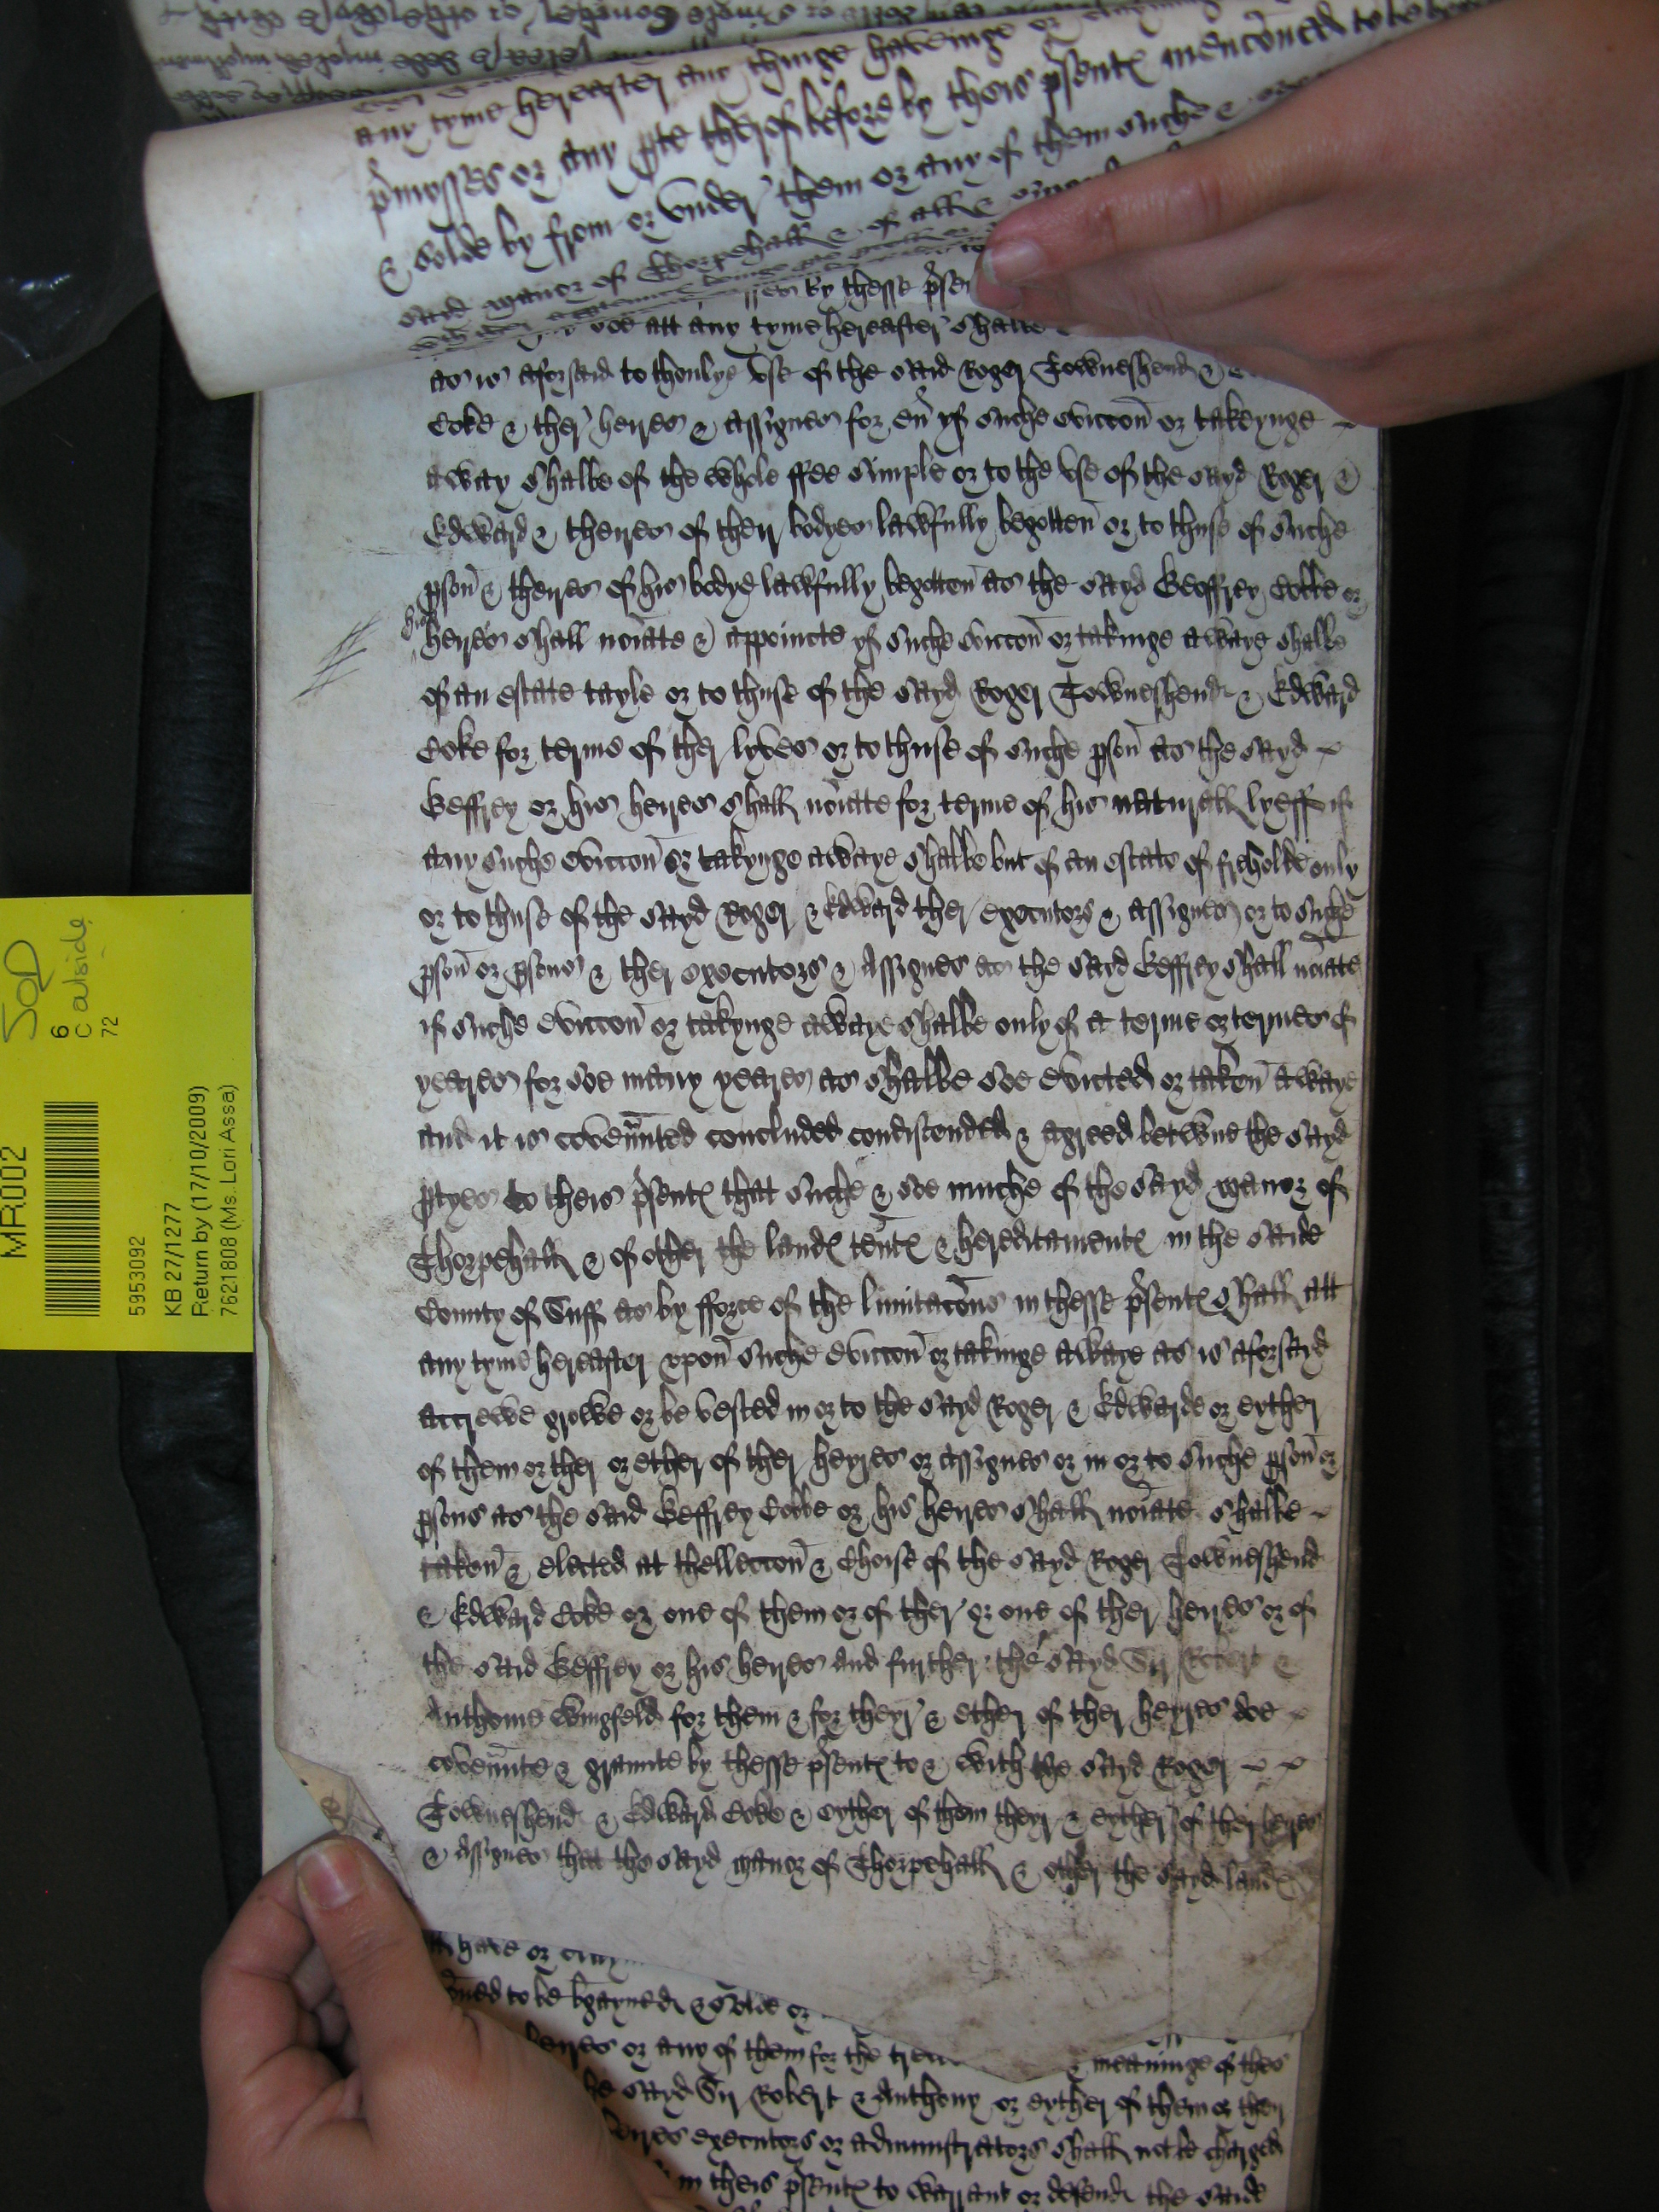 any tyme hereafter any thinge haveinge or
p̄mysses or any pte therof before by theis p̄sentꝭ menconed to be
& solde by from or under them or any of them suche &
said manor of Thorpehall & of all &
by thesse p̄sen
soe att any tyme hereafter shalbe
as is aforsaid to thonlye use of the said Roger Towneshend &
Coke & ther heires & assignes for eũ yf suche eviccoñ or takeynge
away shalbe of the whole ffee simple or to the use of the sayd Roger &
Edward & theires of their bodyes lawfully begotteñ or to thuse of suche
psoñ & theires of his bodye lawfully begotteñ as the sayd Geoffrey Cobbe or
his heires shall noīate & appointe yf suche eviccoñ or takinge awaye shalbe
of an estate tayle or to thuse of the sayd Roger Towneshend & Edward
Coke for terme of ther lyves or to thuse of suche psoñ as the sayd
Geffrey or his heires shall noīate for terme of his naturall lyeff if
any suche eviccoñ or takynge awaye shalbe but of an estate of freholde only
or to thuse of the sayd Roger & Edward ther executors & assignes or to suche
psoñ or psons & ther executors & Assignes as the sayd Geffrey shall noīate
if suche eviccoñ or takynge awaye shalbe only of a terme or termes of
yeares for soe many yeares as shalbe soe evicted or takeñ awaye
and it is coveñnted concluded condiscended & agreed betwne the sayd
ptyes to theis p̄sentꝭ that suche & soe muche of the sayd manor of
Thorpehall & of other the landꝭ teñtꝭ & hereditamentꝭ in the saide
County of Suff as by fforce of the limitacōns in thesse p̄sentꝭ shall att
any tyme hereafter upoñ suche eviccoñ or takinge awaye as is aforsayd
accrewe growe or be vested in or to the sayd Roger & Edwarde or eyther
of them or ther or ether of ther heyres or assignes or in or to suche psoñ or
psons as the said Geffrey Cobbe or his heires shall noīate shalbe
takeñ & elected at thelleccoñ & Choise of the sayd Roger Towneshend
& Edward Coke or one of them or of ther or one of ther heires or of
the said Geffrey or his heires And further the sayd Sir Robert &
Anthonie Wingfeld for them & for theyr & ether of ther heyres doe
coveñnte & graunte by thesse p̄sentꝭ to & with the sayd Roger
Towneshend & Edward Coke & eyther of them theyr & eyther of ther heires
& Assignes that the sayd manor of Thorpehall & other the sayd landꝭ
have or
to be bgayned & solde or
heires or any of them for the meaninge of thes
the sayd Sir Robert & Anthony or eyther of them or ther
heires executors or administrators shall not be charged
in theis p̄sentꝭ to warrant or defend the saide
MR002
5953092
KB 27/1277
Return by (17/10/2009)
7621808 (Ms. Lori Assa)
SOD
6
C outside
72